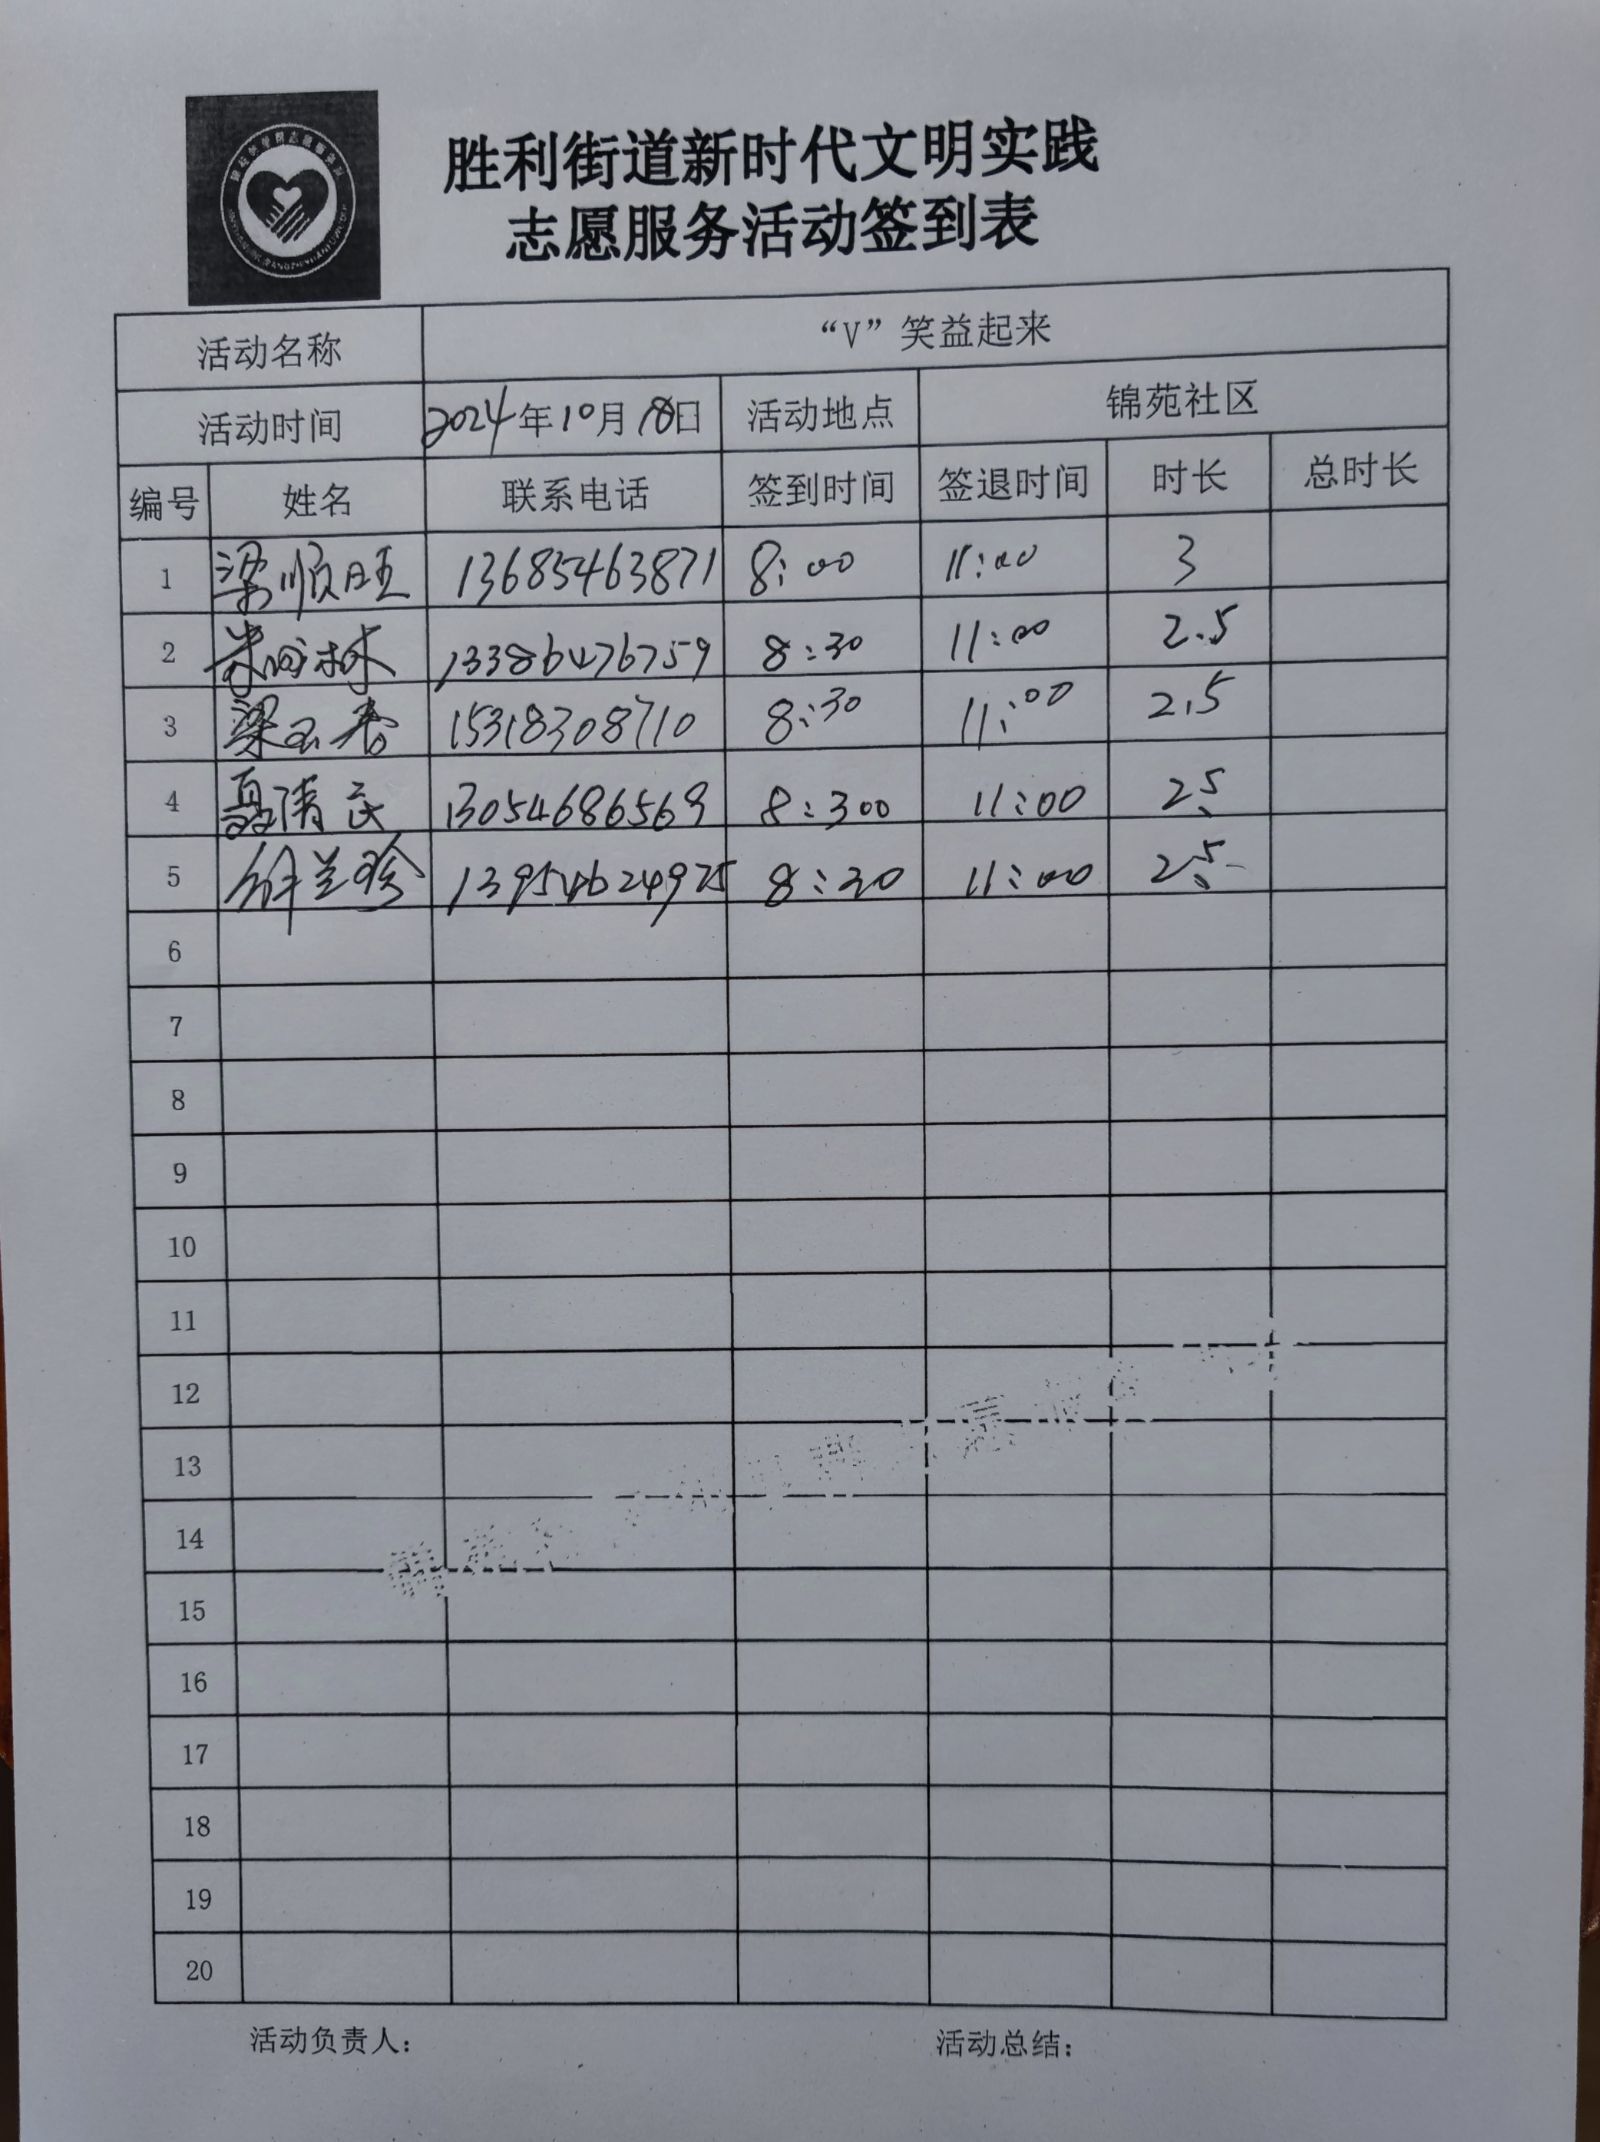 胜利街道新时代文明实践
志愿服务活动签到表
活动名称 “V”笑益起来
活动时间 2024年10月18日 活动地点 锦苑社区
编号 姓名 联系电话 签到时间 签退时间 时长 总时长
1 梁顺旺 13685463871 8:00 11:00 3
2 13386476759 8:30 11:00 2.5
3 梁玉春 15318308710 8:30 11:00 2.5
4 聂清民 13054686569 8:300 11:00 2.5
5 徐兰珍 13954624975 8:30 11:00 2.5
6
7
8
9
10
11
12
13
14
15
16
17
18
19
20
活动负责人: 活动总结: